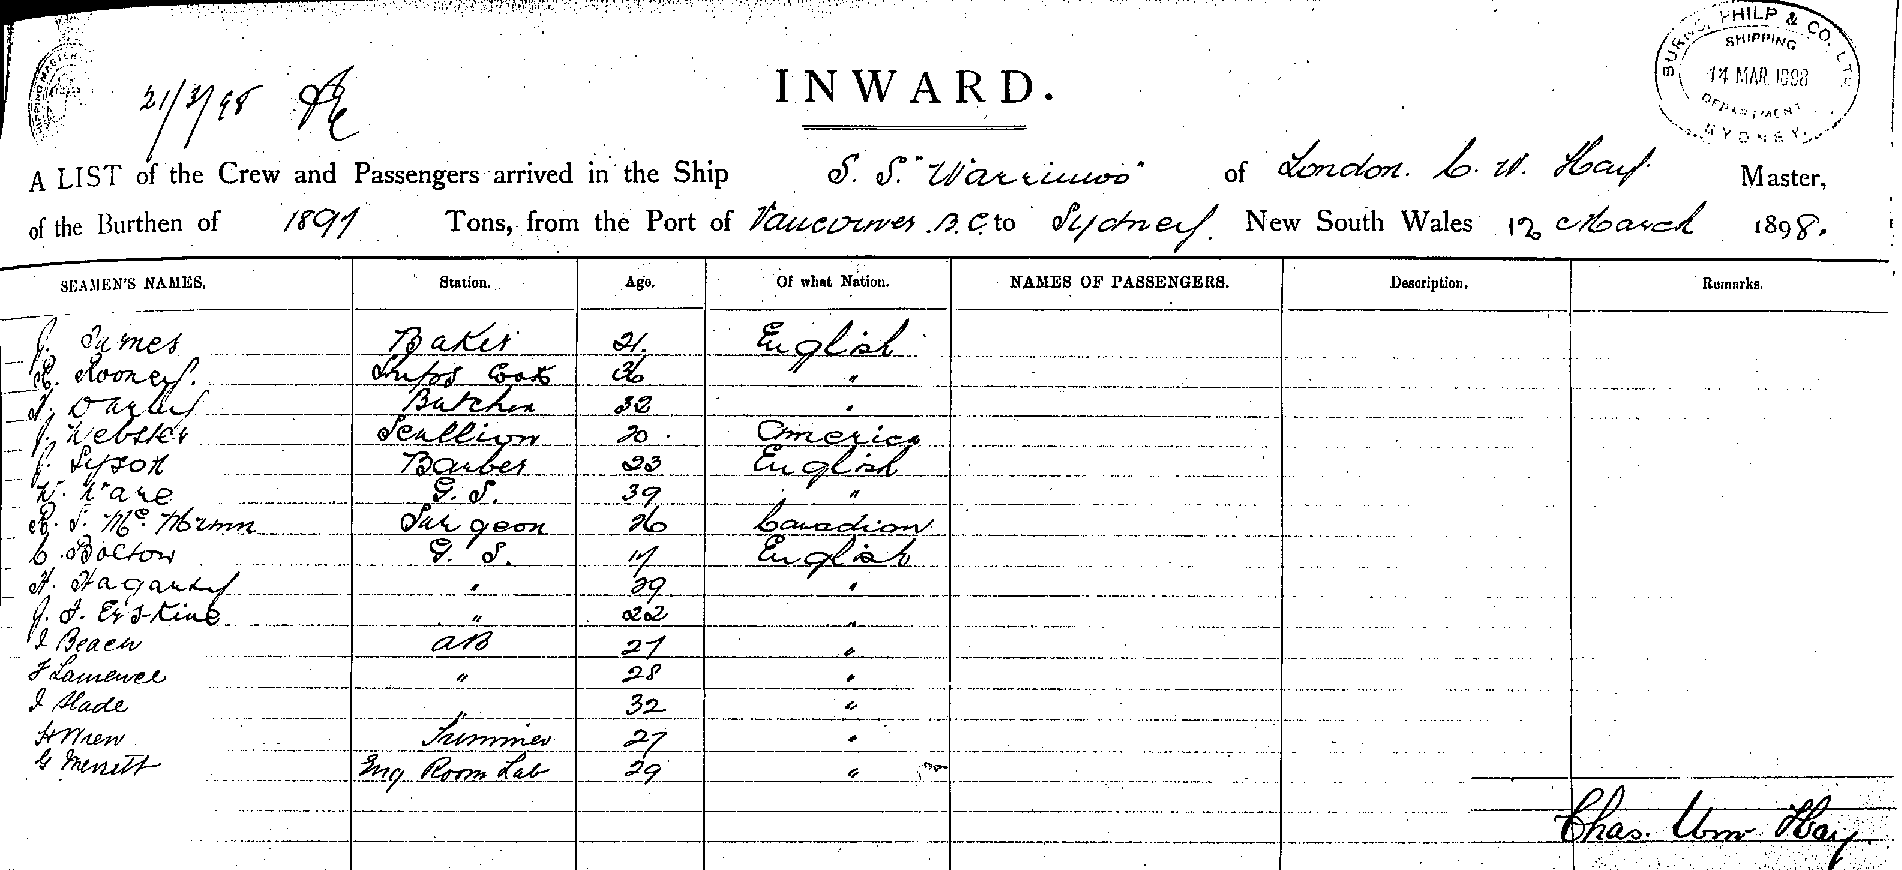 BURNS, PHILP & CO. LTD
SHIPPING
14 MAR 1898
DEPARTMENT
SYDNEY.
21/3/98
INWARD.
A LIST of the Crew and Passengers arrived in the Ship S. S. "Warrimoo" of London. C. W. Hay Master,
of the Burthen of 1897 Tons, from the Port of Vancouver B.C. to Sydney. New South Wales 12 March 1898.
SEAMEN'S NAMES. Station. Age. Of what Nation. NAMES OF PASSENGERS. Description. Remarks.
J. James Baker 21. English
Rooney. Cook 36 "
Darley Butcher 32 "
J. Webster Scullion 20. America
J. Tyson Barber 23 English
W. Ware G. S. 39 "
Mc. Surgeon 26 Canadian
C. Bolton G. S. 17 English
H. Hagarty " 29 "
J. T. Erskine " 22 "
J Beach AB 27 "
F Lawrence " 28 "
J Slade " 32 "
H Wren Trimmer 27 "
G Merrett Eng Room Lab 29 "
Chas. Wm Hay